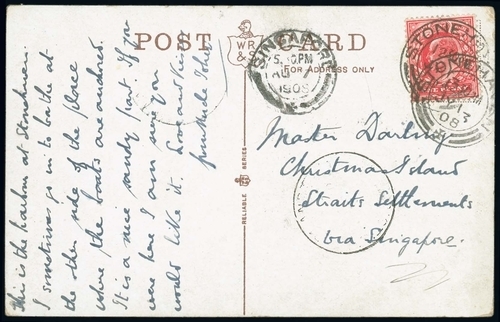 POST CARD
WR
& S
FOR ADDRESS ONLY
RELIABLE SERIES
This is the harbour at Stonehaven.
I sometimes go in to bathe at
the other side of the place
where the boats are anchored.
It is a nice sandy part. If you
were here I am sure you
would like it. Love and kisses
from
SINGAPORE
5. PM
1908
STONEHAVEN
08
Master Darling
Christmas Island
Straits Settlements
via Singapore.